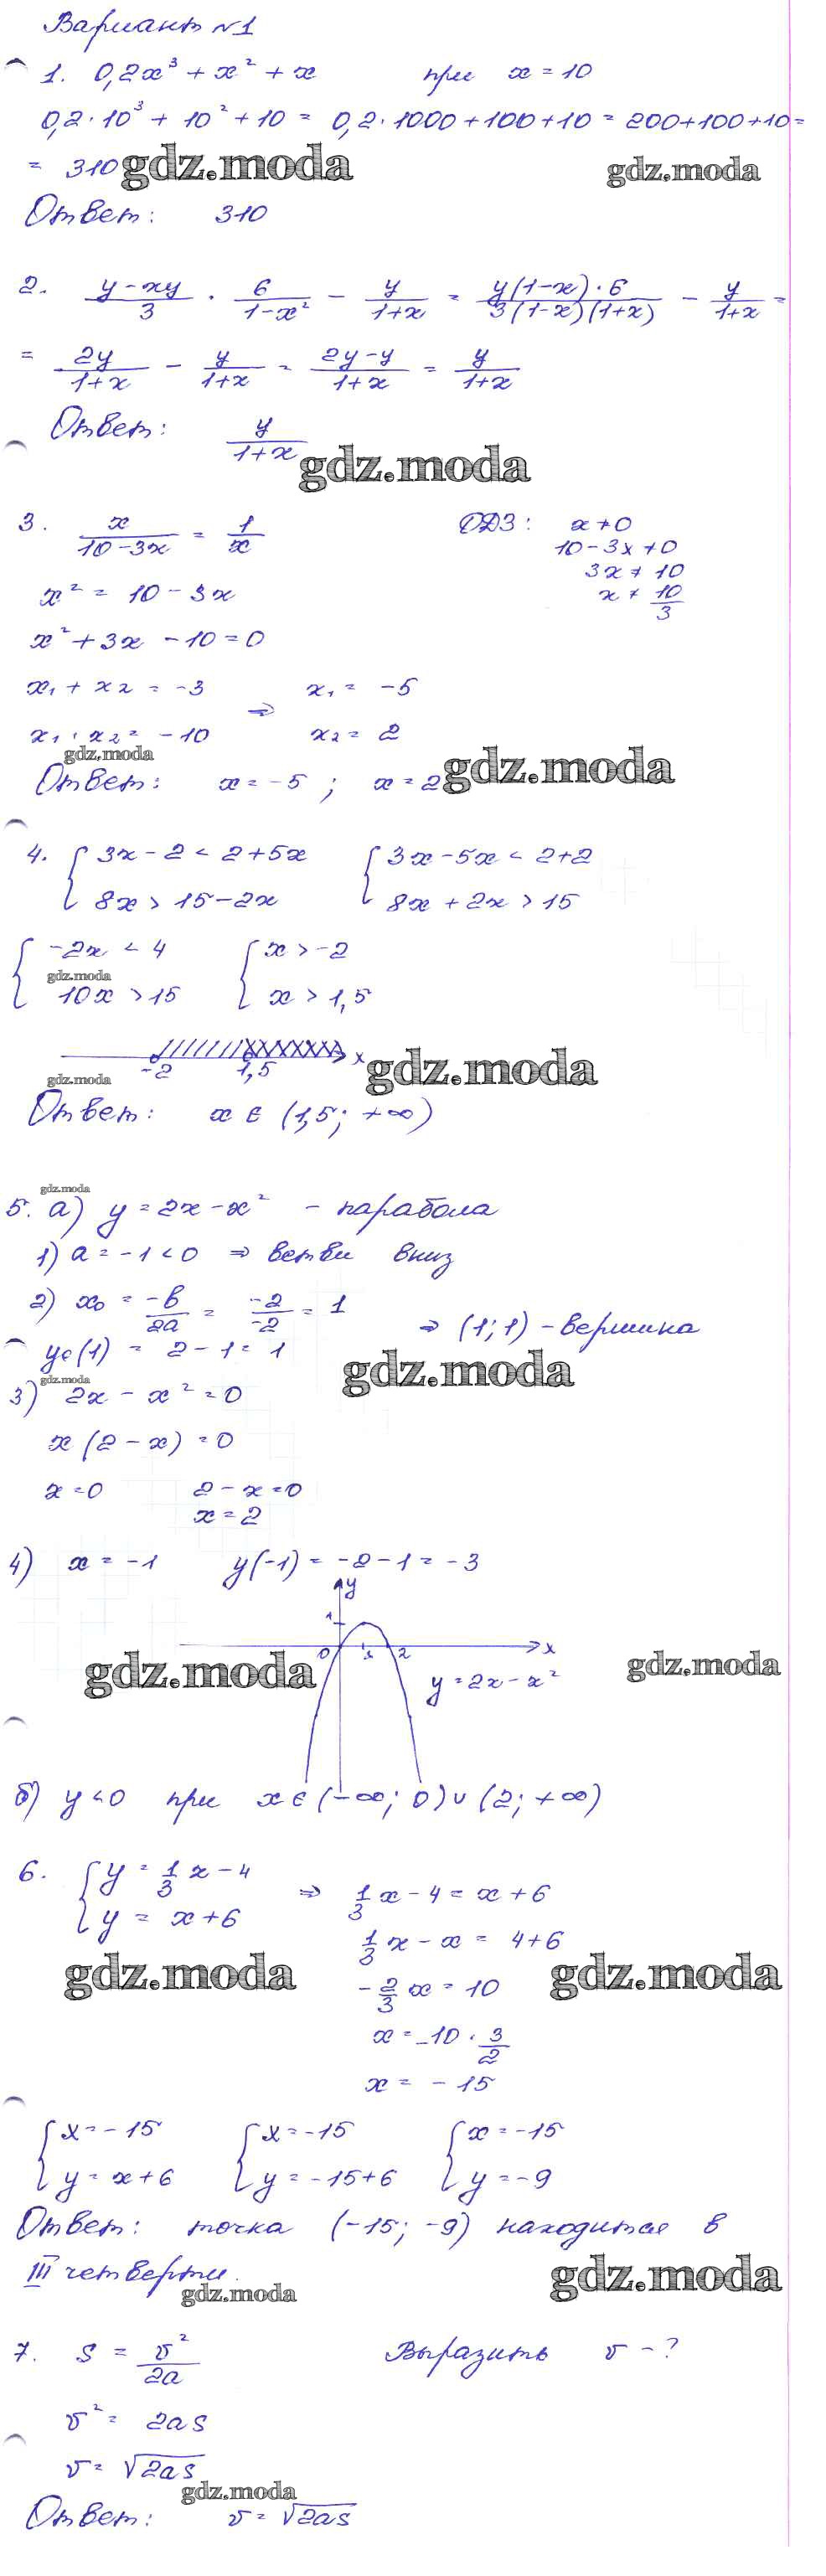 Вариант №1
1. 0,2x³ + x² + x при x = 10
0,2·10³ + 10² + 10 = 0,2·1000+100+10 = 200+100+10 =
= 310 gdz.moda gdz.moda
Ответ: 310
2. (y-xy)/3 · 6/(1-x²) - y/(1+x) = (y(1-x)·6)/(3(1-x)(1+x)) - y/(1+x) =
= 2y/(1+x) - y/(1+x) = (2y-y)/(1+x) = y/(1+x)
Ответ: y/(1+x)
gdz.moda
3. x/(10-3x) = 1/x ОДЗ: x≠0
10-3x≠0
3x≠10
x² = 10-3x x≠10/3
x²+3x-10=0
x₁+x₂=-3 ⇒ x₁= -5
x₁·x₂=-10 x₂= 2
gdz.moda
Ответ: x=-5; x=2 gdz.moda
4. { 3x-2<2+5x { 3x-5x<2+2
8x>15-2x 8x+2x>15
{ -2x<4 { x>-2
gdz.moda
10x>15 x>1,5
-2 1,5 x gdz.moda
gdz.moda
Ответ: x∈(1,5; +∞)
gdz.moda
5. а) y=2x-x² - парабола
1) a=-1<0 ⇒ ветви вниз
2) x₀ = -b/2a = -2/-2 = 1
⇒ (1;1) - вершина
y₀(1) = 2-1=1
gdz.moda gdz.moda
3) 2x-x²=0
x(2-x)=0
x=0 2-x=0
x=2
4) x=-1 y(-1)=-2-1=-3
y
1
0 1 2 x
gdz.moda y=2x-x² gdz.moda
б) y<0 при x∈(-∞; 0)∪(2; +∞)
6. { y=1/3x-4 ⇒ 1/3x-4=x+6
y=x+6
1/3x-x=4+6
gdz.moda -2/3x=10 gdz.moda
x=-10·3/2
x=-15
{ x=-15 { x=-15 { x=-15
y=x+6 y=-15+6 y=-9
Ответ: точка (-15; -9) находится в
III четверти.
gdz.moda gdz.moda
7. S = v²/2a Выразить v-?
v²= 2as
v= √2as
gdz.moda
Ответ: v=√2as